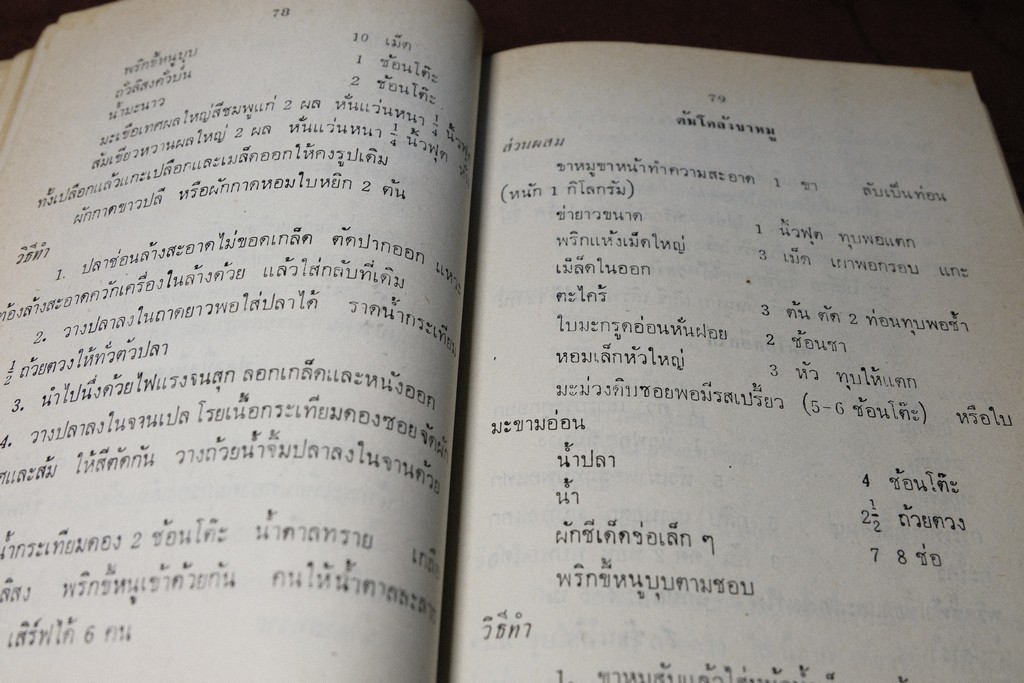 78
พริกขี้หนูบุบ 10 เม็ด
ถั่วลิสงคั่วป่น 1 ช้อนโต๊ะ
น้ำมะนาว 2 ช้อนโต๊ะ
มะเขือเทศผลใหญ่สีชมพูแก่ 2 ผล หั่นแว่นหนา ¼ นิ้วฟุต
ส้มเขียวหวานผลใหญ่ 2 ผล หั่นแว่นหนา ¼ นิ้วฟุต
ทั้งเปลือกแล้วแกะเปลือกและเมล็ดออกให้คงรูปเดิม
ผักกาดขาวปลี หรือผักกาดหอมใบหยิก 2 ต้น
วิธีทำ
1. ปลาช่อนล้างสะอาดไม่ขอดเกล็ด ตัดปากออก แหวะ
ท้องล้างสะอาดควักเครื่องในล้างด้วย แล้วใส่กลับที่เดิม
2. วางปลาลงในถาดยาวพอใส่ปลาได้ ราดน้ำกระเทียม
½ ถ้วยตวงให้ทั่วตัวปลา
3. นำไปนึ่งด้วยไฟแรงจนสุก ลอกเกล็ดและหนังออก
4. วางปลาลงในจานเปล โรยเนื้อกระเทียมดองซอย จัดผัก
และส้ม ให้สีตัดกัน วางถ้วยน้ำจิ้มปลาลงในจานด้วย
น้ำกระเทียมดอง 2 ช้อนโต๊ะ น้ำตาลทราย
พริกขี้หนูเข้าด้วยกัน คนให้น้ำตาลละลาย
เสิร์ฟได้ 6 คน
79
ต้มโคล้งขาหมู
ส่วนผสม
ขาหมูขาหน้าทำความสะอาด 1 ขา สับเป็นท่อน
(หนัก 1 กิโลกรัม)
ข่ายาวขนาด 1 นิ้วฟุต ทุบพอแตก
พริกแห้งเม็ดใหญ่ 3 เม็ด เผาพอกรอบ แกะ
เม็ล็ดในออก
ตะไคร้ 3 ต้น ตัด 2 ท่อนทุบพอช้ำ
ใบมะกรูดอ่อนหั่นฝอย 2 ช้อนชา
หอมเล็กหัวใหญ่ 3 หัว ทุบให้แตก
มะม่วงดิบซอยพอมีรสเปรี้ยว (5-6 ช้อนโต๊ะ) หรือใบ
มะขามอ่อน
น้ำปลา 4 ช้อนโต๊ะ
น้ำ 2½ ถ้วยตวง
ผักชีเด็ดช่อเล็ก ๆ 7 8 ช่อ
พริกขี้หนูบุบตามชอบ
วิธีทำ
1. ขาหมูสับแล้วใส่หม้อน้ำ